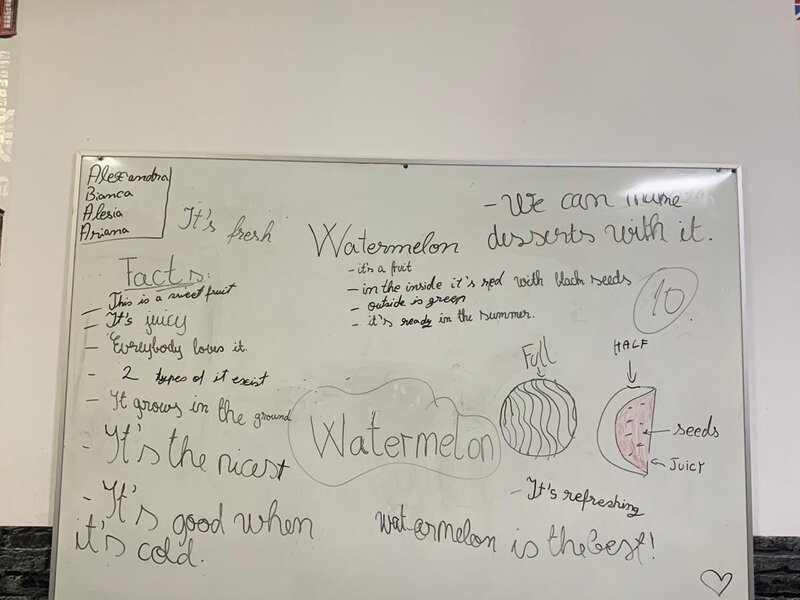 Alexandra
Bianca
Alesia
Ariana
It's fresh
Facts:
- This is a sweet fruit
- It's juicy
- Everybody loves it.
- 2 types of it exist
- It grows in the ground
- It's the nicest
- It's good when
it's cold.
Watermelon
- it's a fruit
- in the inside it's red with black seeds
- outside is green
- it's ready in the summer.
- We can
desserts with it.
10
Watermelon
Full
HALF
seeds
Juicy
- It's refreshing
watermelon is the best!